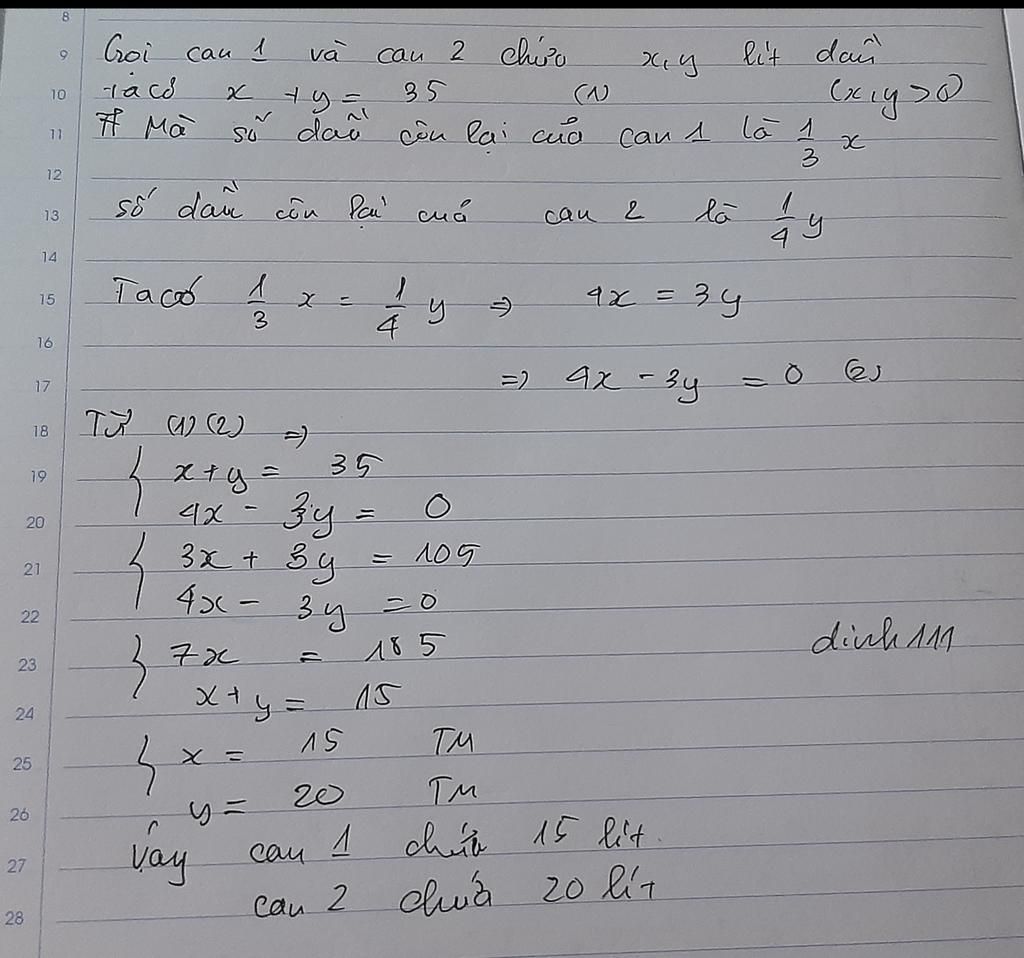 8
9 Gọi can 1 và can 2 chứa x, y lít dầu
10 ta có x + y = 35 (1) (x, y > 0)
11 Mà số dầu còn lại của can 1 là 1/3 x
12
13 số dầu còn lại của can 2 là 1/4 y
14
15 Ta có 1/3 x = 1/4 y => 4x = 3y
16
17 => 4x - 3y = 0 (2)
18 Từ (1) (2) =>
19 { x + y = 35
20 4x - 3y = 0
21 { 3x + 3y = 105
22 4x - 3y = 0
23 { 7x = 185 dinh 111
24 x + y = 15
25 { x = 15 TM
26 y = 20 TM
27 Vậy can 1 chứa 15 lít.
28 can 2 chứa 20 lít